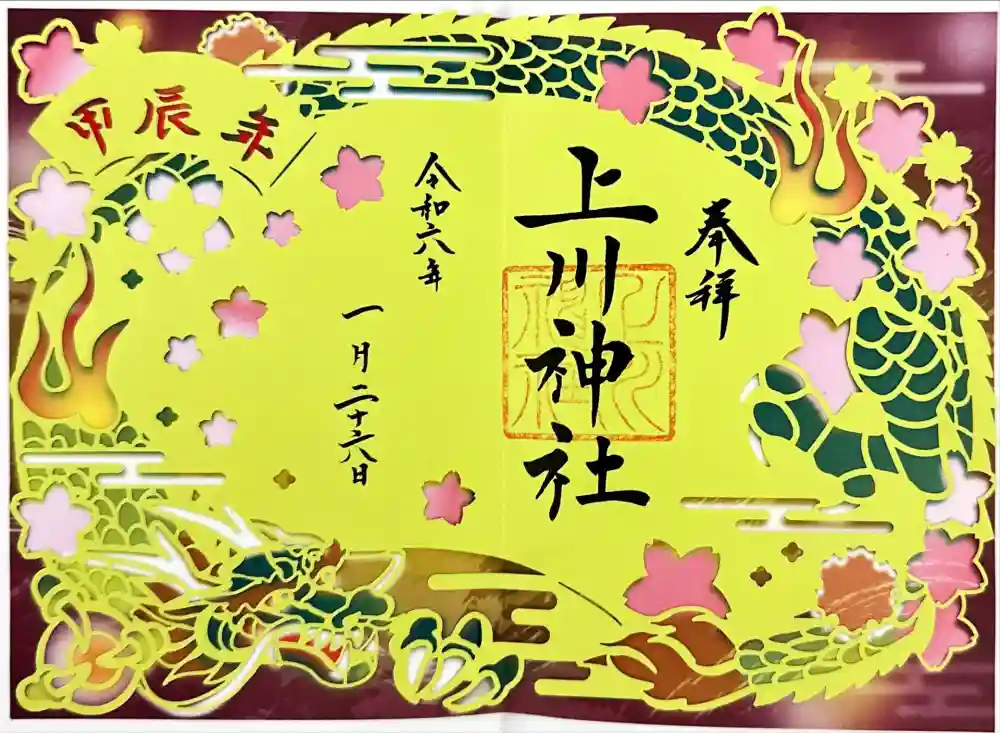 奉拝
上川神社
令和六年
一月二十六日
甲辰年